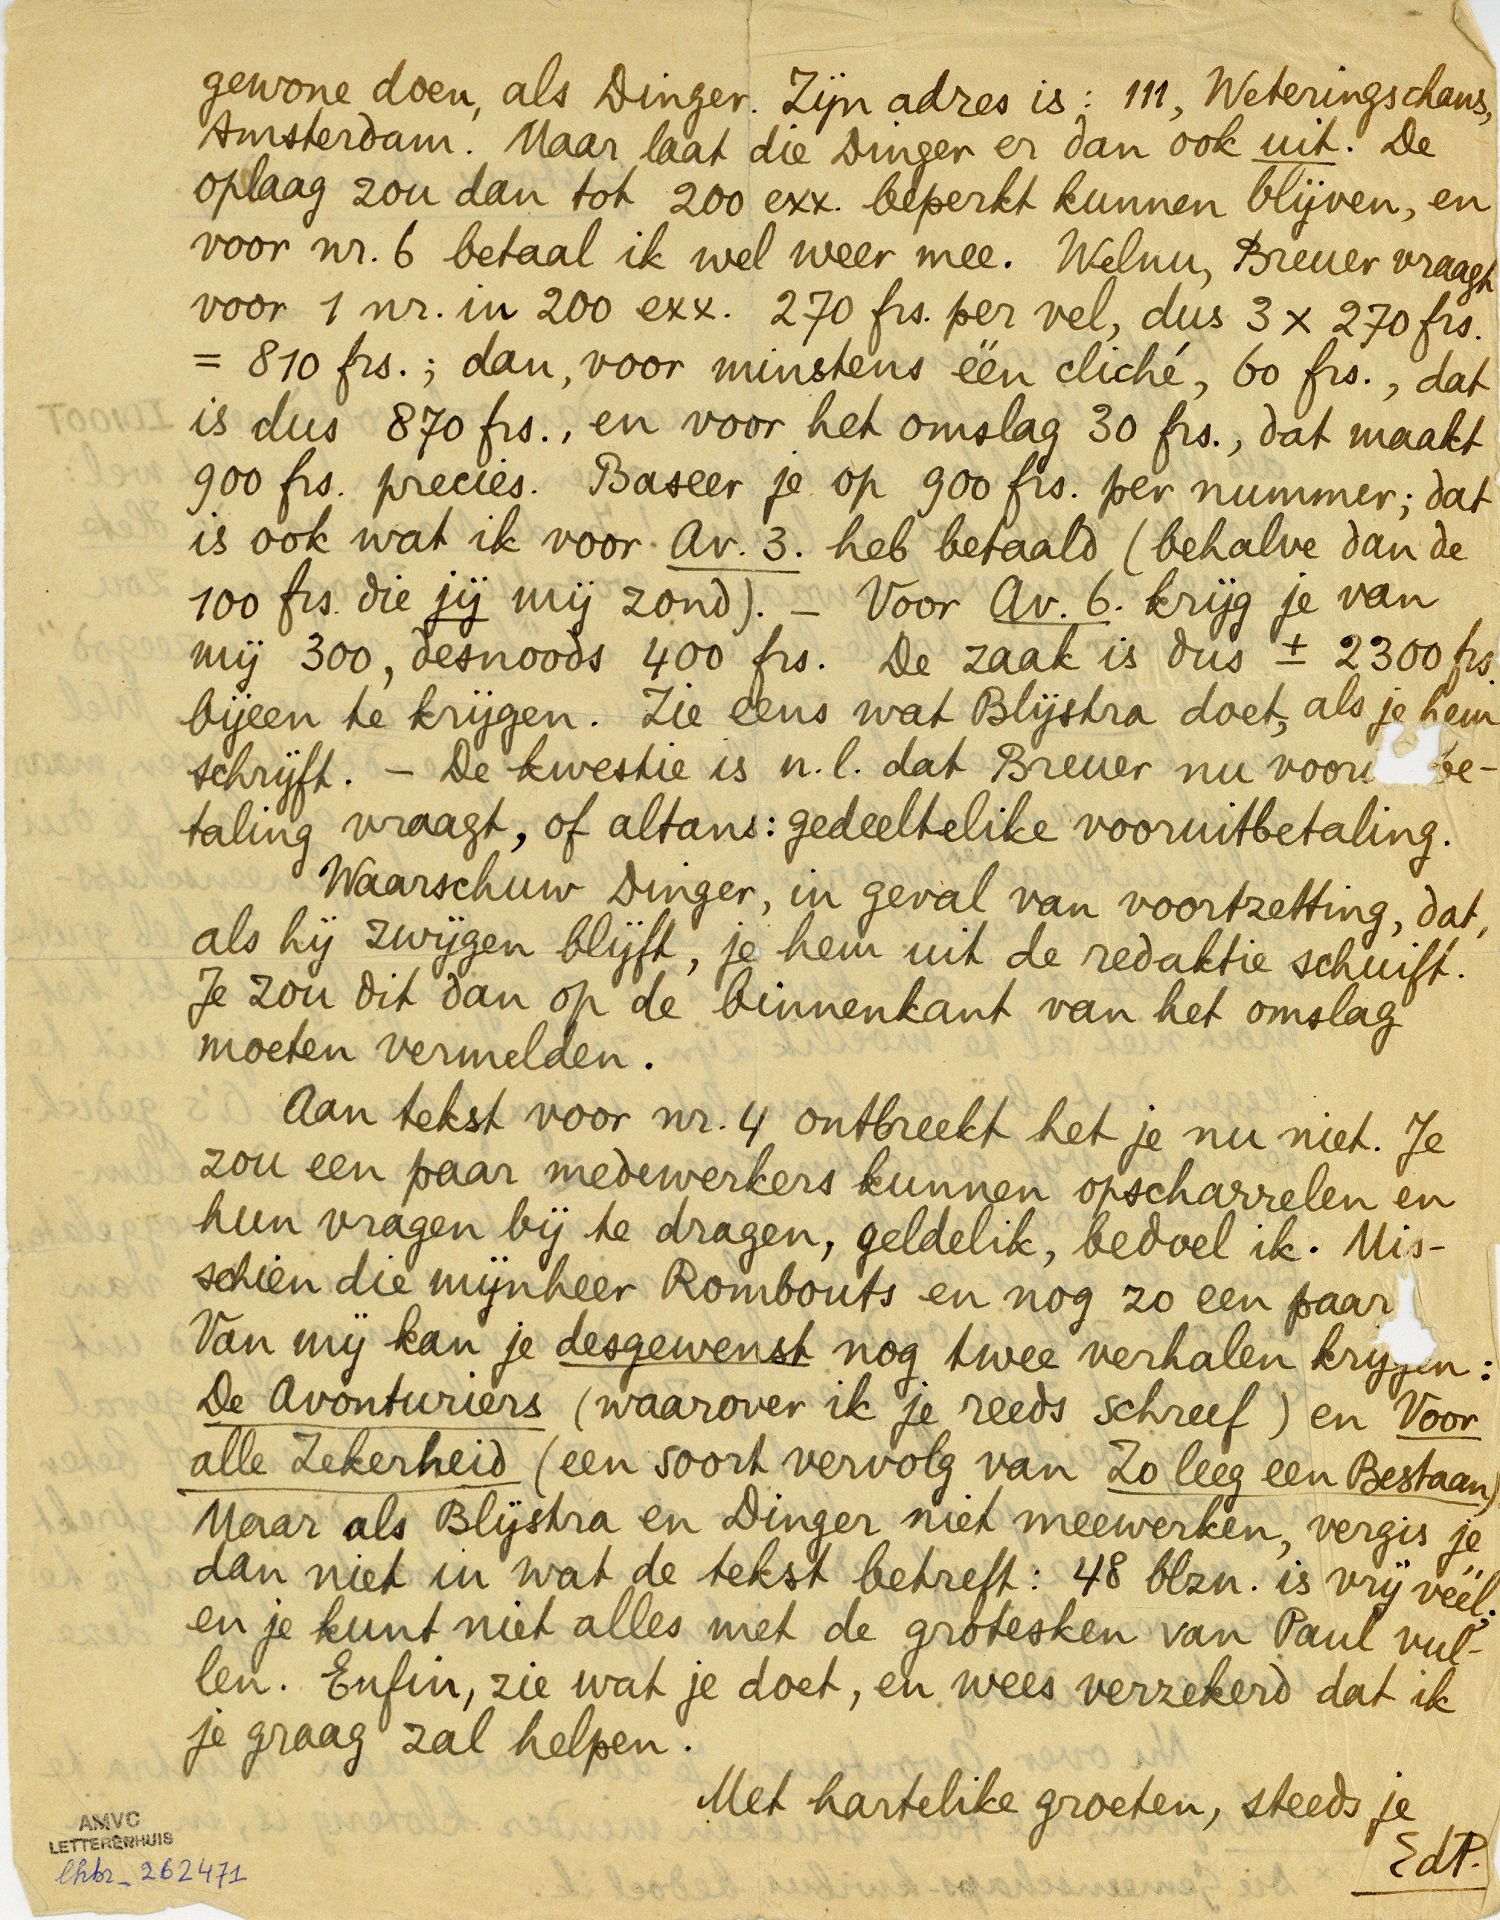 gewone doen, als Dinger. Zijn adres is: 111, Weteringschans,
Amsterdam. Maar laat die Dinger er dan ook uit. De
oplaag zou dan tot 200 exx. beperkt kunnen blijven, en
voor nr. 6 betaal ik wel weer mee. Welnu, Breuer vraagt
voor 1 nr. in 200 exx. 270 frs. per vel, dus 3 x 270 frs.
= 810 frs.; dan, voor minstens één cliché, 60 frs., dat
is dus 870 frs., en voor het omslag 30 frs., dat maakt
900 frs. precies. Baseer je op 900 frs. per nummer; dat
is ook wat ik voor Av. 3. heb betaald (behalve dan de
100 frs. die jij mij zond). – Voor Av. 6. krijg je van
mij 300, desnoods 400 frs. De zaak is dus ± 2300 frs.
bijeen te krijgen. Zie eens wat Blijstra doet, als je hem
schrijft. – De kwestie is n.l. dat Breuer nu voor be-
taling vraagt, of altans: gedeeltelike vooruitbetaling.
Waarschuw Dinger, in geval van voortzetting, dat,
als hij zwijgen blijft, je hem uit de redaktie schuift.
Je zou dit dan op de binnenkant van het omslag
moeten vermelden.
Aan tekst voor nr. 4 ontbreekt het je nu niet. Je
zou een paar medewerkers kunnen opscharrelen en
hun vragen bij te dragen, geldelik, bedoel ik. Mis-
schien die mijnheer Rombouts en nog zo een paar
Van mij kan je desgewenst nog twee verhalen krijgen:
De Avonturiers (waarover ik je reeds schreef) en Voor
alle Zekerheid (een soort vervolg van Zo leeg een Bestaan)
Maar als Blijstra en Dinger niet meewerken, vergis je
dan niet in wat de tekst betreft: 48 blzn. is vrij véél;
en je kunt niet alles met de grotesken van Paul vul-
len. Enfin, zie wat je doet, en wees verzekerd dat ik
je graag zal helpen.
Met hartelike groeten, steeds je
EdP.
AMVC
LETTERENHUIS
lhbr_262471